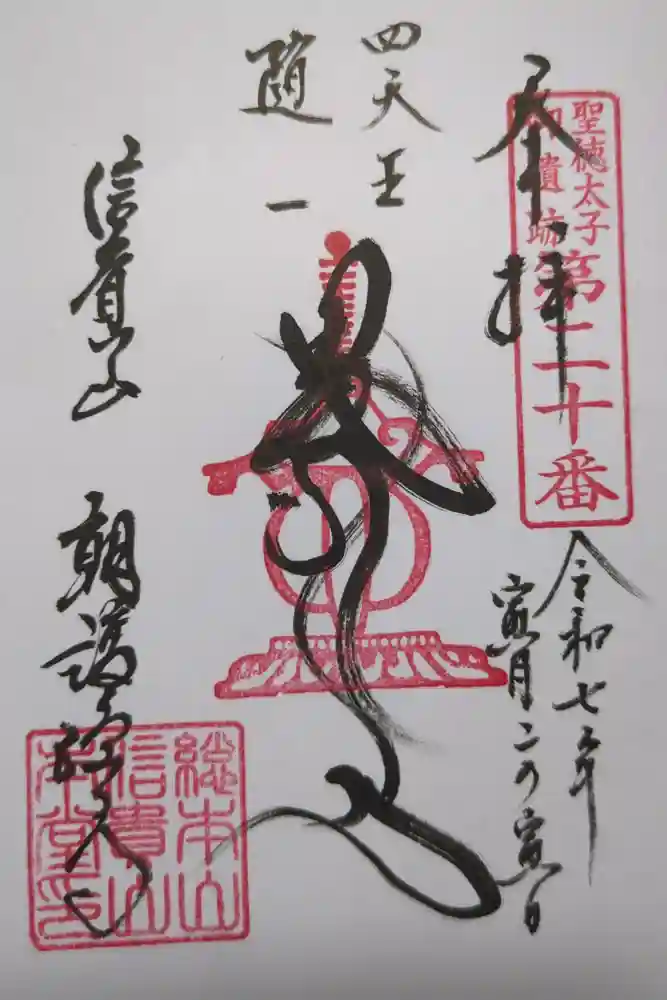 奉拝
聖徳太子
御遺跡
第二十番
令和七年
寅月二の寅日
四天王
随一
信貴山
朝護孫子寺
総本山
信貴山
本堂印